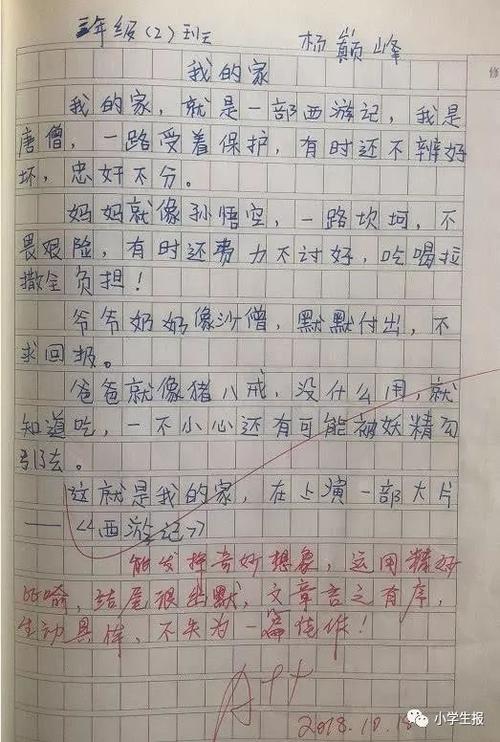 三年级(2)班 杨巅峰
修
我的家
我的家，就是一部西游记，我是
唐僧，一路受着保护，有时还不辨好
坏，忠奸不分。
妈妈就像孙悟空，一路坎坷，不
畏艰险，有时还费力不讨好，吃喝拉
撒全负担！
爷爷奶奶像沙僧，默默付出，不
求回报。
爸爸就像猪八戒，没什么用，就
知道吃，一不小心还有可能被妖精勾
引了去。
这就是我的家，在上演一部大片
——《西游记》
能发挥奇妙想象，运用精妙
比喻，结尾很幽默，文章言之有序，
生动具体，不失为一篇佳作！
A++
2018.10.18
小学生报